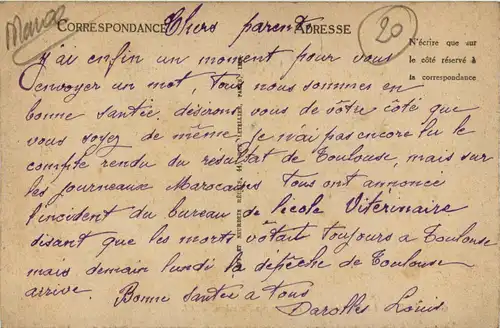 Maroc
CORRESPONDANCE
Chers parents
ADRESSE
20
N'écrire que sur
le côté réservé à
la correspondance
j'ai enfin un moment pour vous
envoyer un mot, Tous nous sommes en
bonne santée. désirons vous de vôtre côté que
vous soyez de même. Je n'ai pas encore lu le
compte rendu du résultat de Toulouse, mais sur
les journeaux Marocains Tous ont annoncé
l'incident du bureau de l'école Vétérinaire
disant que les morts vôtait toujours a Toulouse
mais demain lundi la dépêche de Toulouse
arrive. Bonne santée a Tous
Darolles Louis